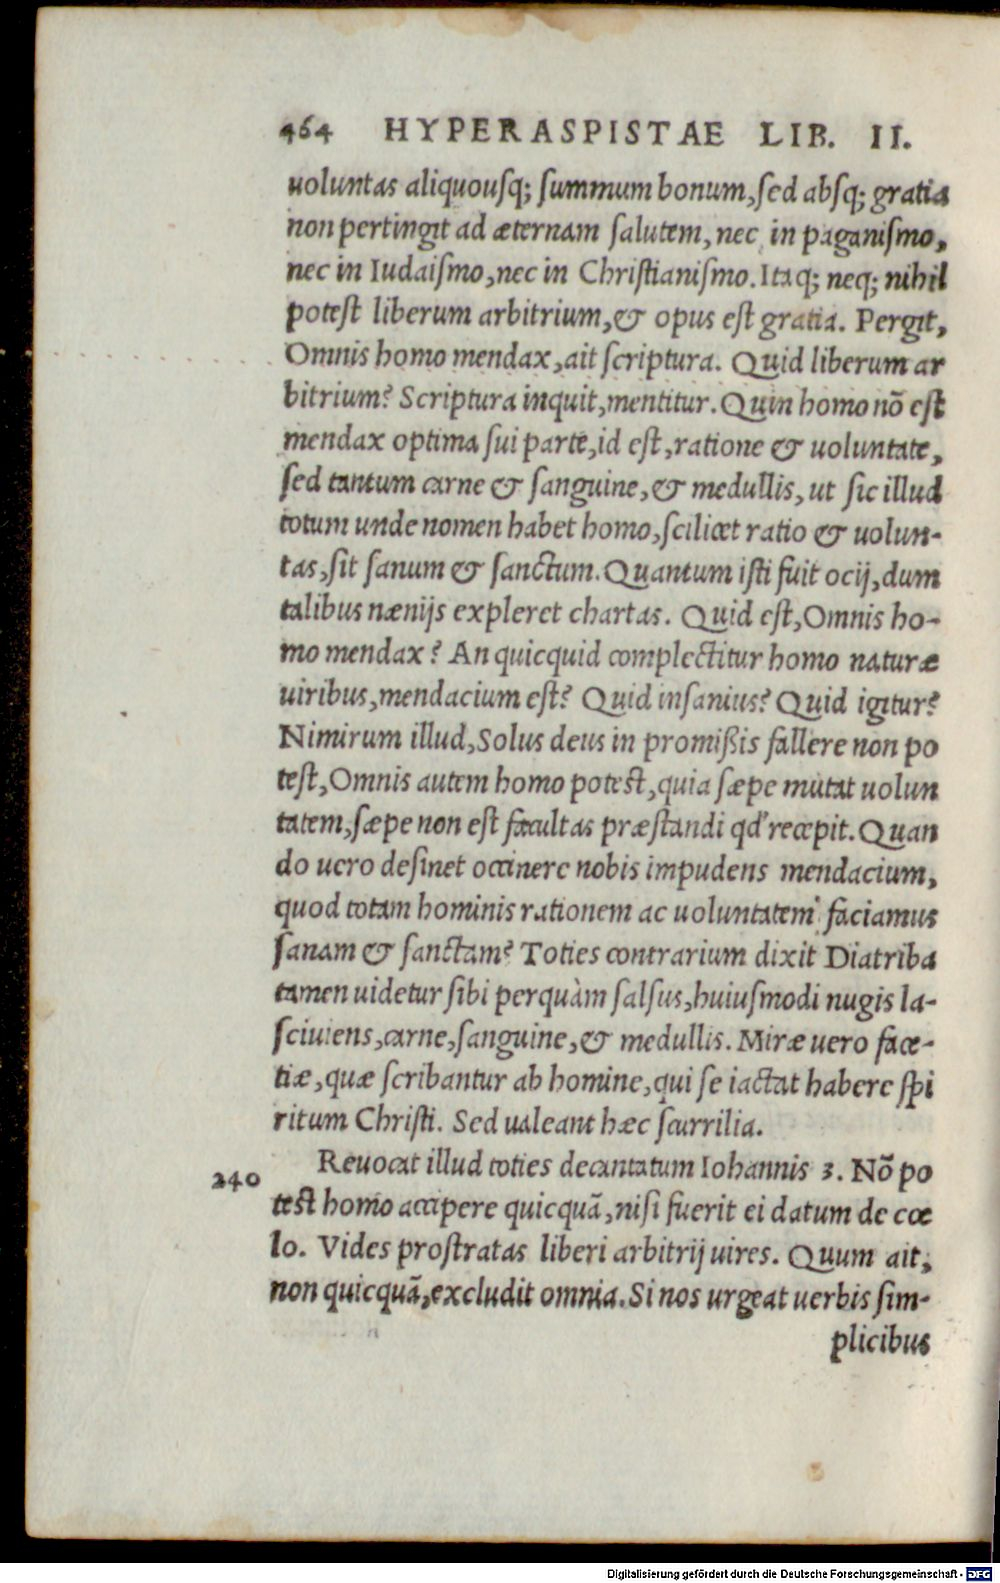 464 HYPERASPISTAE LIB. II.
uoluntas aliquousq; summum bonum, sed absq; gratia
non pertingit ad æternam salutem, nec in paganismo,
nec in Iudaismo, nec in Christianismo. Itaq; neq; nihil
potest liberum arbitrium, & opus est gratia. Pergit,
Omnis homo mendax, ait scriptura. Quid liberum ar
bitrium? Scriptura inquit, mentitur. Quin homo nõ est
mendax optima sui parte, id est, ratione & uoluntate,
sed tantum carne & sanguine, & medullis, ut sic illud
totum unde nomen habet homo, scilicet ratio & uolun-
tas, sit sanum & sanctum. Quantum isti fuit ocij, dum
talibus nænijs expleret chartas. Quid est, Omnis ho-
mo mendax? An quicquid complectitur homo naturæ
uiribus, mendacium est? Quid insanius? Quid igitur?
Nimirum illud, Solus deus in promißis fallere non po
test, Omnis autem homo potest, quia sæpe mutat uolun
tatem, sæpe non est facultas præstandi qd' recepit. Quan
do uero desinet occinere nobis impudens mendacium,
quod totam hominis rationem ac uoluntatem faciamus
sanam & sanctam? Toties contrarium dixit Diatriba
tamen uidetur sibi perquàm salsus, huiusmodi nugis la-
sciuiens, carne, sanguine, & medullis. Miræ uero face-
tiæ, quæ scribantur ab homine, qui se iactat habere spi
ritum Christi. Sed ualeant hæc scurrilia.
240 Reuocat illud toties decantatum Iohannis 3. Nõ po
test homo accipere quicquã, nisi fuerit ei datum de cœ
lo. Vides prostratas liberi arbitrij uires. Quum ait,
non quicquã, excludit omnia. Si nos urgeat uerbis sim-
plicibus
Digitalisierung gefördert durch die Deutsche Forschungsgemeinschaft - DFG